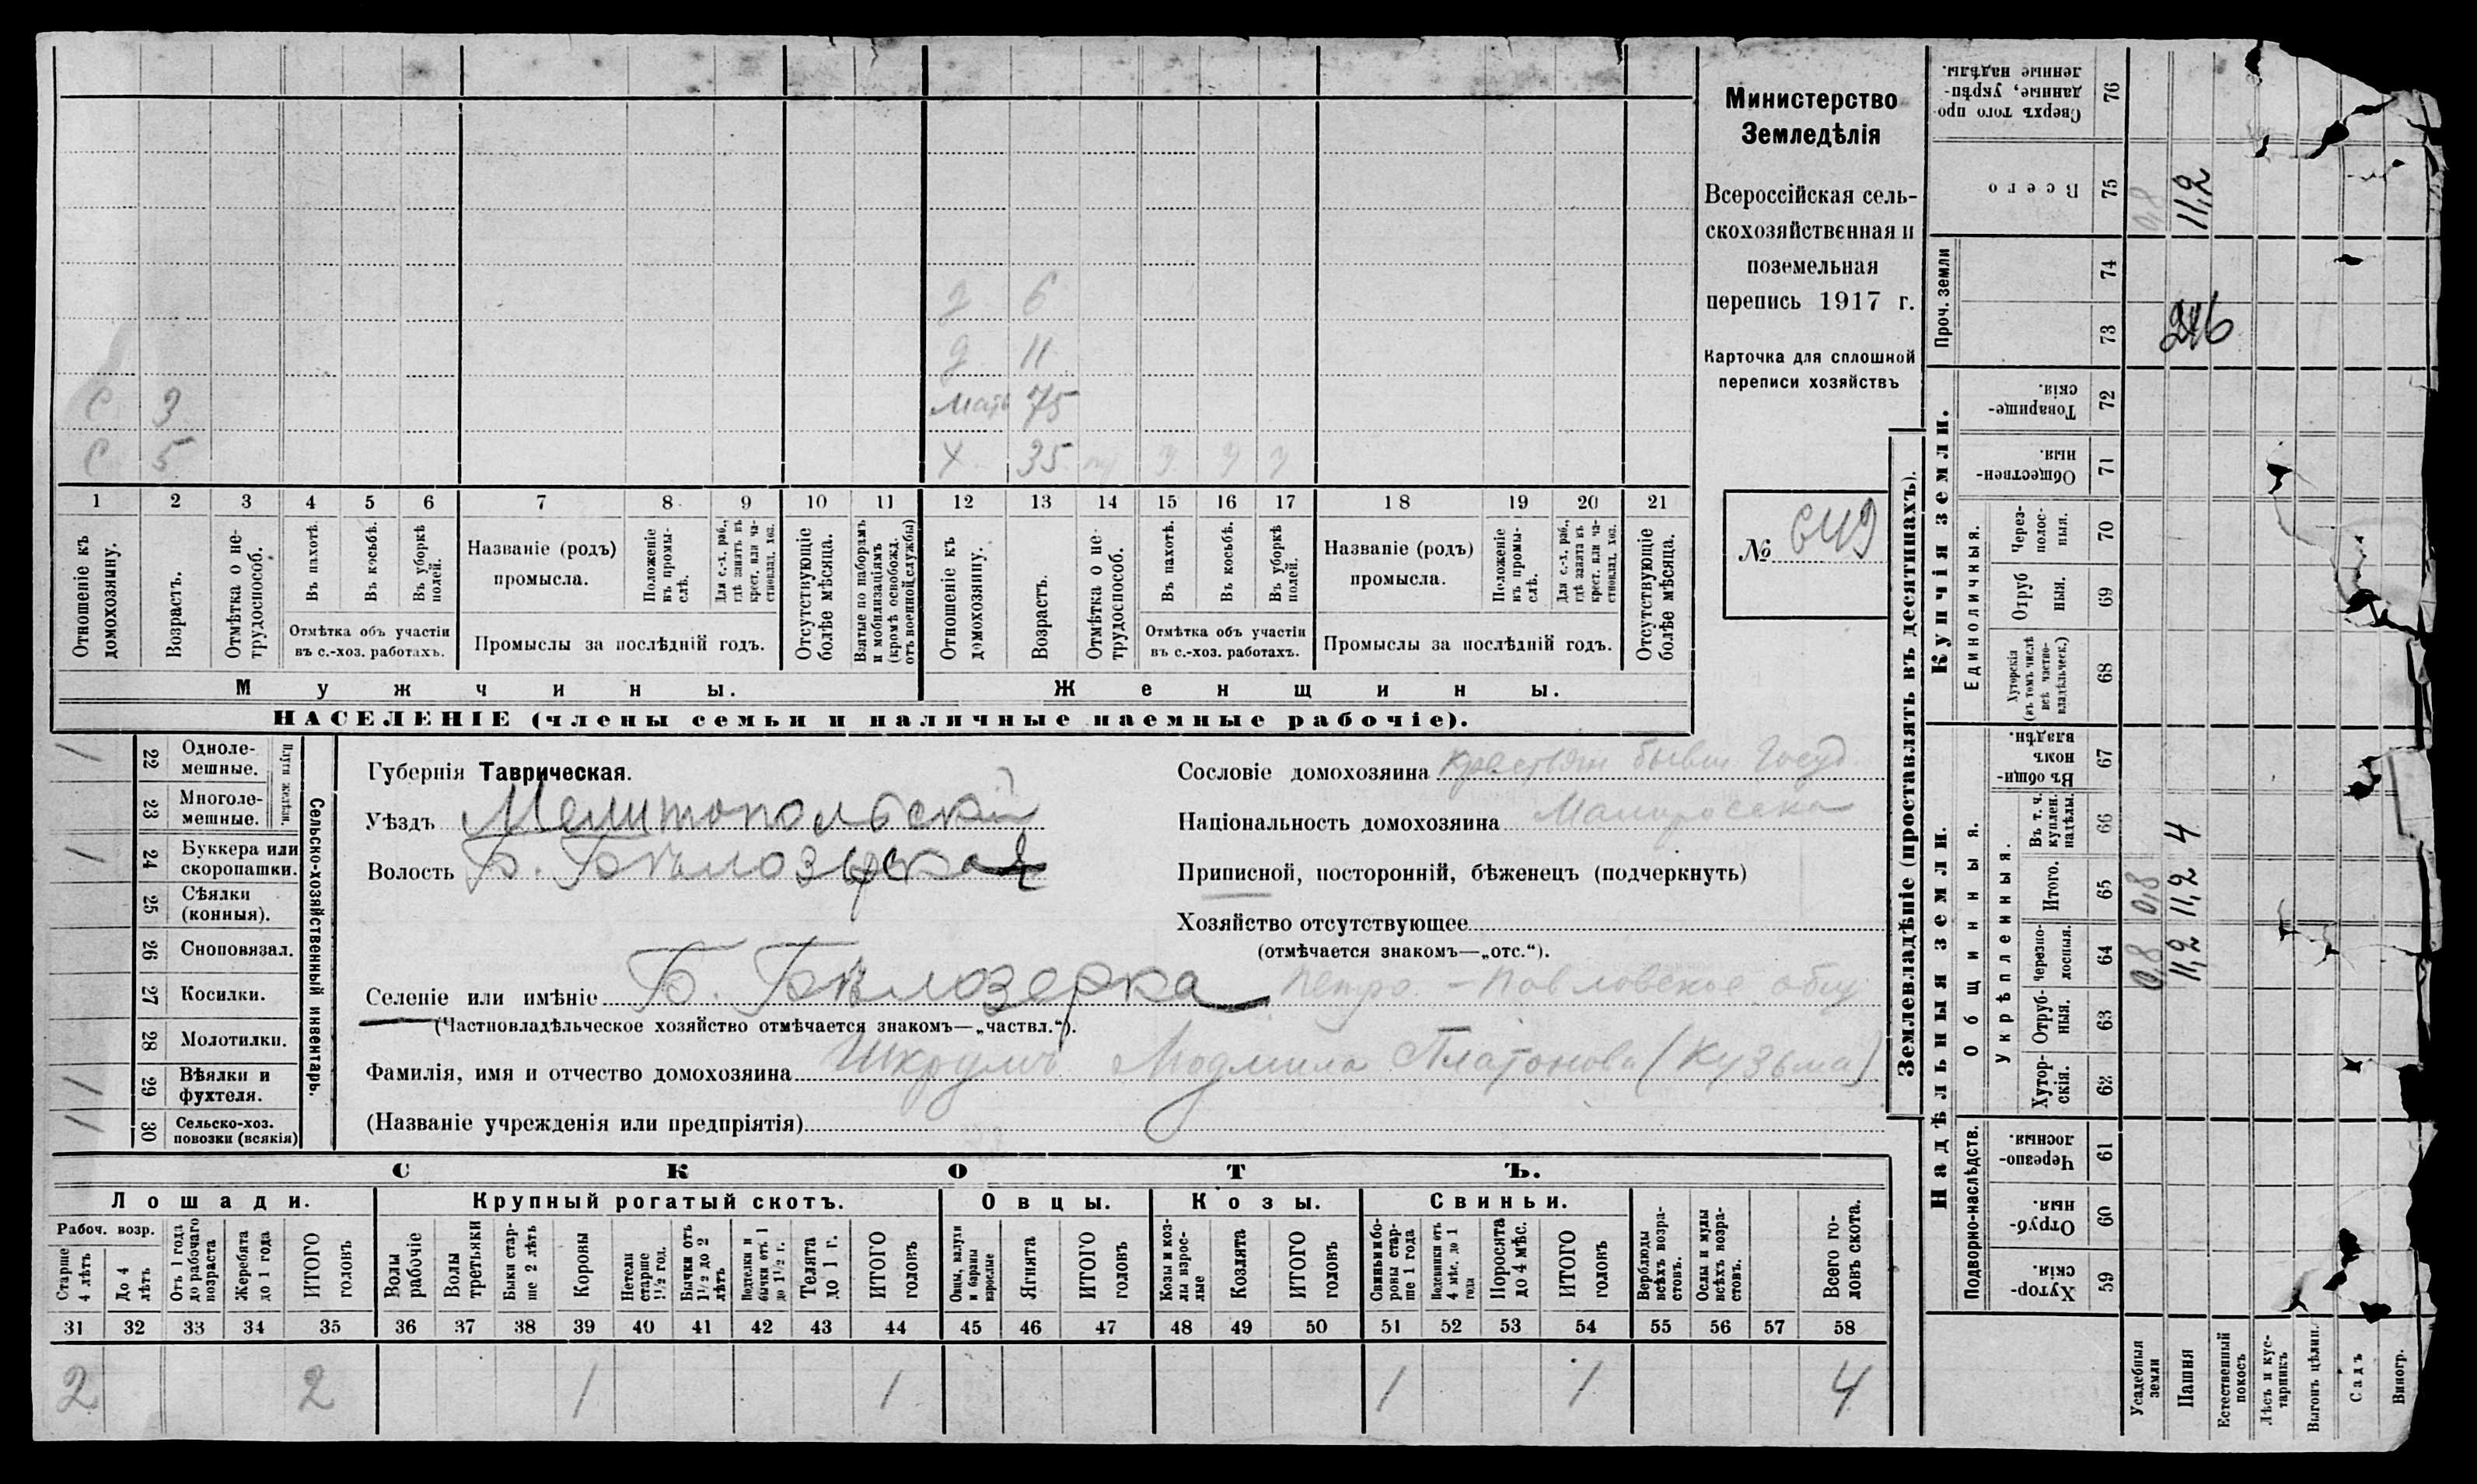 2 6
9 11
С 3 Мать 75
С 5 Х 35 У У У
1 2 3 4 5 6 7 8 9 10 11 12 13 14 15 16 17 18 19 20 21
Отношеніе къ домохозяину.
Возрастъ.
Отмѣтка о не-трудоспособ.
Въ пахотѣ.
Въ косьбѣ.
Въ уборкѣ полей.
Отмѣтка объ участіи
въ с.-хоз. работахъ.
Названіе (родъ)
промысла.
Положеніе въ промы-слѣ.
Для с.-х. раб., гдѣ занятъ въ крест. или ча-стновлад. хоз.
Промыслы за послѣдній годъ.
Отсутствующіе болѣе мѣсяца.
Взятые по наборамъ и мобилизаціямъ (кромѣ освобожд. отъ военной службы)
Отношеніе къ домохозяину.
Возрастъ.
Отмѣтка о не-трудоспособ.
Въ пахотѣ.
Въ косьбѣ.
Въ уборкѣ полей.
Отмѣтка объ участіи
въ с.-хоз. работахъ.
Названіе (родъ)
промысла.
Положеніе въ промы-слѣ.
Для с.-х. раб., гдѣ занята въ крест. или ча-стновлад. хоз.
Промыслы за послѣдній годъ.
Отсутствующіе болѣе мѣсяца.
Мужчины.
Женщины.
НАСЕЛЕНІЕ (члены семьи и наличные наемные рабочіе).
Министерство
Земледѣлія
Всероссійская сель-
скохозяйственная и
поземельная
перепись 1917 г.
Карточка для сплошной
переписи хозяйствъ
№ 649
1 22 Одноле-мешные.
23 Многоле-мешные.
Плуги желѣзн.
1 24 Буккера или скоропашки.
25 Сѣялки (конныя).
26 Сноповязал.
27 Косилки.
28 Молотилки.
1 29 Вѣялки и фухтеля.
1 30 Сельско-хоз. повозки (всякія)
Сельско-хозяйственный инвентарь.
Губернія Таврическая.
Уѣздъ Мелитопольскій
Волость Б. Бѣлозерская
Селеніе или имѣніе Б. Бѣлозерка Петро-Павловское общ
(Частновладѣльческое хозяйство отмѣчается знакомъ—„частвл.“).
Фамилія, имя и отчество домохозяина Шкрумъ Людмила Платонова (Кузьма)
(Названіе учрежденія или предпріятія)
Сословіе домохозяина Крестьян бывш Госуд
Національность домохозяина Малоросска
Приписной, посторонній, бѣженецъ (подчеркнуть)
Хозяйство отсутствующее
(отмѣчается знакомъ—„отс.“).
СКОТЪ.
Лошади.
Крупный рогатый скотъ.
Овцы.
Козы.
Свиньи.
Рабоч. возр.
Старше 4 лѣтъ
До 4 лѣтъ
Отъ 1 года до рабочаго возраста
Жеребята до 1 года
ИТОГО головъ
Волы рабочіе
Волы третьяки
Быки стар-ше 2 лѣтъ
Коровы
Нетели старше 1½ год.
Бычки отъ 1½ до 2 лѣтъ
Подтелки и бычки отъ 1 до 1½ г.
Телята до 1 г.
ИТОГО головъ
Овцы, валухи и бараны взрослые
Ягнята
ИТОГО головъ
Козы и коз-лы взрос-лые
Козлята
ИТОГО головъ
Свиньи и бо-ровы стар-ше 1 года
Подсвинки отъ 4 мѣс. до 1 года
Поросята до 4 мѣс.
ИТОГО головъ
Верблюды всѣхъ возра-стовъ.
Ослы и мулы всѣхъ возра-стовъ.
Всего го-ловъ скота.
31 32 33 34 35 36 37 38 39 40 41 42 43 44 45 46 47 48 49 50 51 52 53 54 55 56 57 58
2 2 1 1 1 1 4
Землевладѣніе (проставлять въ десятинахъ).
Надѣльныя земли.
Купчія земли.
Проч. земли
Подворно-наслѣдств.
Общинныя.
Укрѣпленныя.
Единоличныя.
Сверхъ того про-данные, укрѣп-ленные надѣлы. 76
Всего 75 0,8 11,2
74
73 246
Товарище-скія. 72
Обществен-ныя. 71
Через-полос-ныя. 70
Отруб ныя. 69
Хуторскія (въ томъ числѣ всѣ частно-владѣльческ.) 68
Въ общин-номъ владѣн. 67
Въ т. ч. куплен. надѣлы. 66 4
Итого. 65 0,8 11,2
Черезпо-лосныя. 64 0,8 11,2
Отруб-ныя. 63
Хутор-скія. 62
Черезпо-лосныя. 61
Отруб-ныя. 60
Хутор-скія. 59
Усадебныя земли
Пашня
Естественный покосъ
Лѣсъ и кус-тарникъ
Выгонъ цѣлин.
Садъ
Виногр.